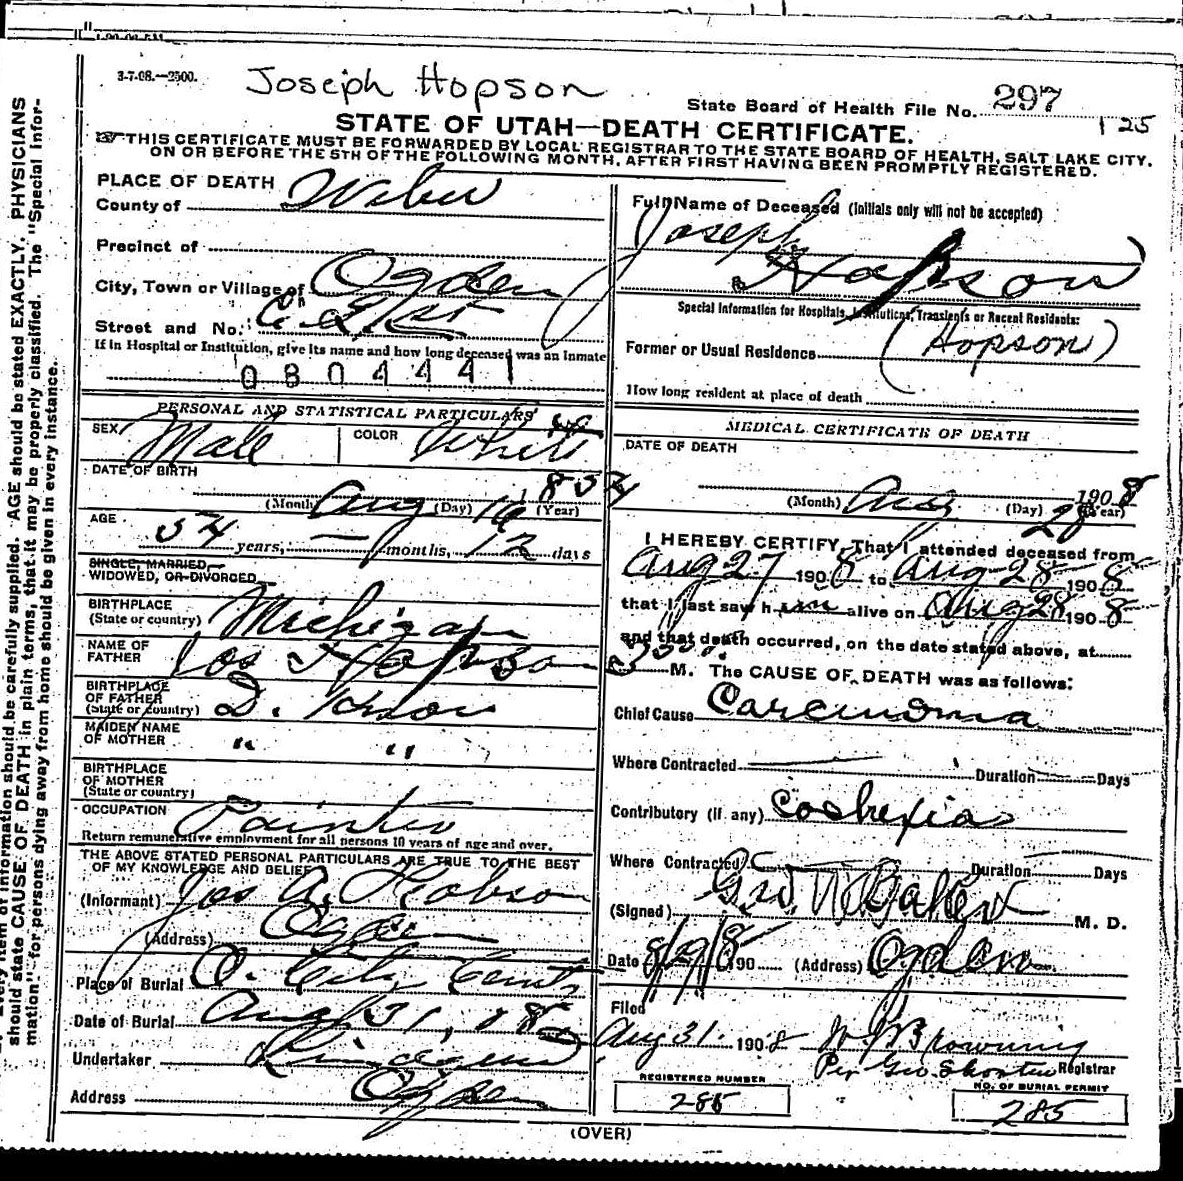 3-7-08.—2500.
Joseph Hopson
State Board of Health File No. 297
1 25
STATE OF UTAH—DEATH CERTIFICATE.
THIS CERTIFICATE MUST BE FORWARDED BY LOCAL REGISTRAR TO THE STATE BOARD OF HEALTH, SALT LAKE CITY,
ON OR BEFORE THE 5TH OF THE FOLLOWING MONTH, AFTER FIRST HAVING BEEN PROMPTLY REGISTERED.
PLACE OF DEATH
County of Weber
Precinct of
City, Town or Village of Ogden
Street and No. 21st
If in Hospital or Institution, give its name and how long deceased was an inmate
0804441
PERSONAL AND STATISTICAL PARTICULARS
SEX Male COLOR White
DATE OF BIRTH
(Month) Aug (Day) 16 1854 (Year)
AGE
54 years, — months, 12 days
SINGLE, MARRIED,
WIDOWED, OR DIVORCED
BIRTHPLACE
(State or country) Michigan
NAME OF
FATHER Jos Hopson
BIRTHPLACE
OF FATHER
(State or country) D. Know
MAIDEN NAME
OF MOTHER " "
BIRTHPLACE
OF MOTHER
(State or country)
OCCUPATION Painter
Return remunerative employment for all persons 10 years of age and over.
THE ABOVE STATED PERSONAL PARTICULARS ARE TRUE TO THE BEST
OF MY KNOWLEDGE AND BELIEF
(Informant) Jos A. Hobson
(Address) Ogden
Place of Burial O. City Cemty
Date of Burial Aug 31, 08
Undertaker
Address Ogden
Full Name of Deceased (Initials only will not be accepted)
Joseph
Hopson
Special Information for Hospitals, Institutions, Transients or Recent Residents:
Former or Usual Residence (Hopson)
How long resident at place of death
MEDICAL CERTIFICATE OF DEATH
DATE OF DEATH
(Month) Aug (Day) 28 1908 (Year)
I HEREBY CERTIFY, That I attended deceased from
Aug 27 1908 to Aug 28 1908
that I last saw him alive on Aug 28 1908
and that death occurred, on the date stated above, at
3 M. The CAUSE OF DEATH was as follows:
Chief Cause Carcinoma
Where Contracted Duration Days
Contributory (if any) Cachexia
Where Contracted Duration Days
(Signed) Geo. W Baker M. D.
Date 8/29/8 190 (Address) Ogden
Filed
Aug 31. 1908 W Browning
Per Geo. Shorten Registrar
REGISTERED NUMBER
285
NO. OF BURIAL PERMIT
285
(OVER)
Every item of information should be carefully supplied. AGE should be stated EXACTLY. PHYSICIANS
should state CAUSE OF DEATH in plain terms, that it may be properly classified. The "Special Infor-
mation" for persons dying away from home should be given in every instance.